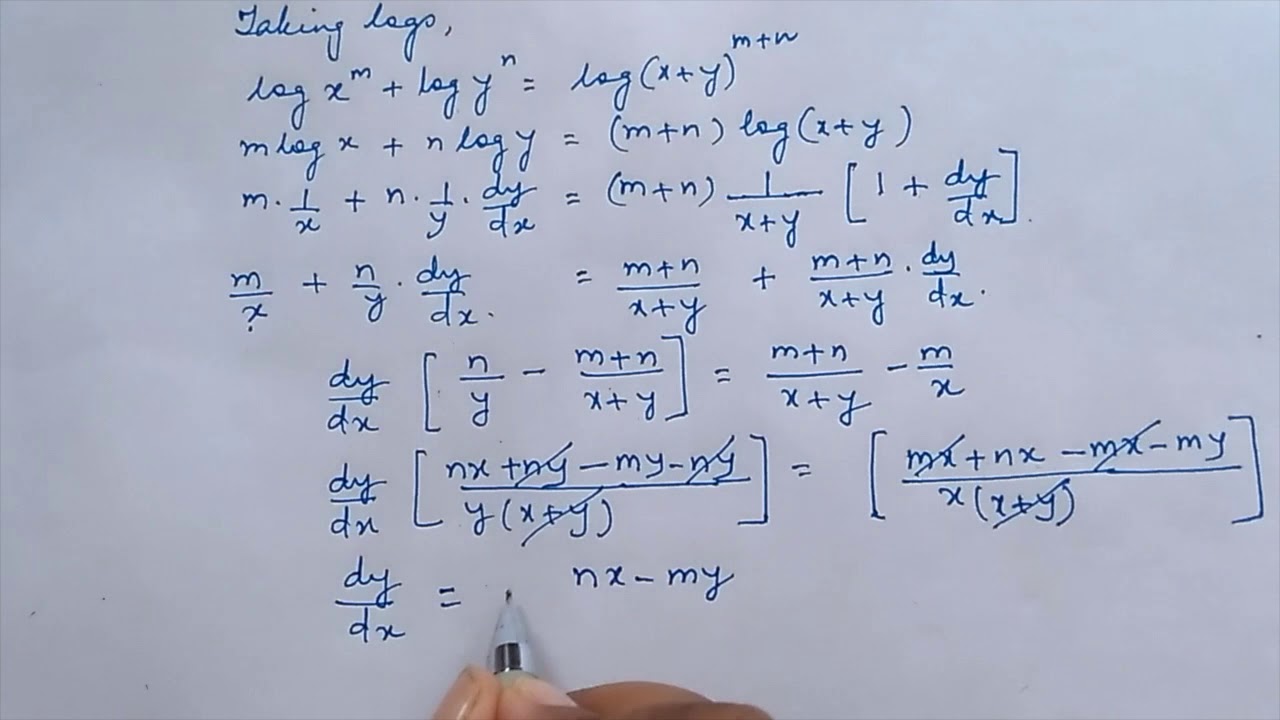 Taking logs,
log x^m + log y^n = log(x+y)^m+n
m log x + n log y = (m+n) log(x+y)
m · 1/x + n · 1/y · dy/dx = (m+n) 1/x+y [1 + dy/dx].
m/x + n/y · dy/dx. = m+n/x+y + m+n/x+y · dy/dx.
dy/dx [n/y - m+n/x+y] = m+n/x+y - m/x
dy/dx [nx+ny-my-ny/y(x+y)] = [mx+nx-mx-my/x(x+y)]
dy/dx = nx-my